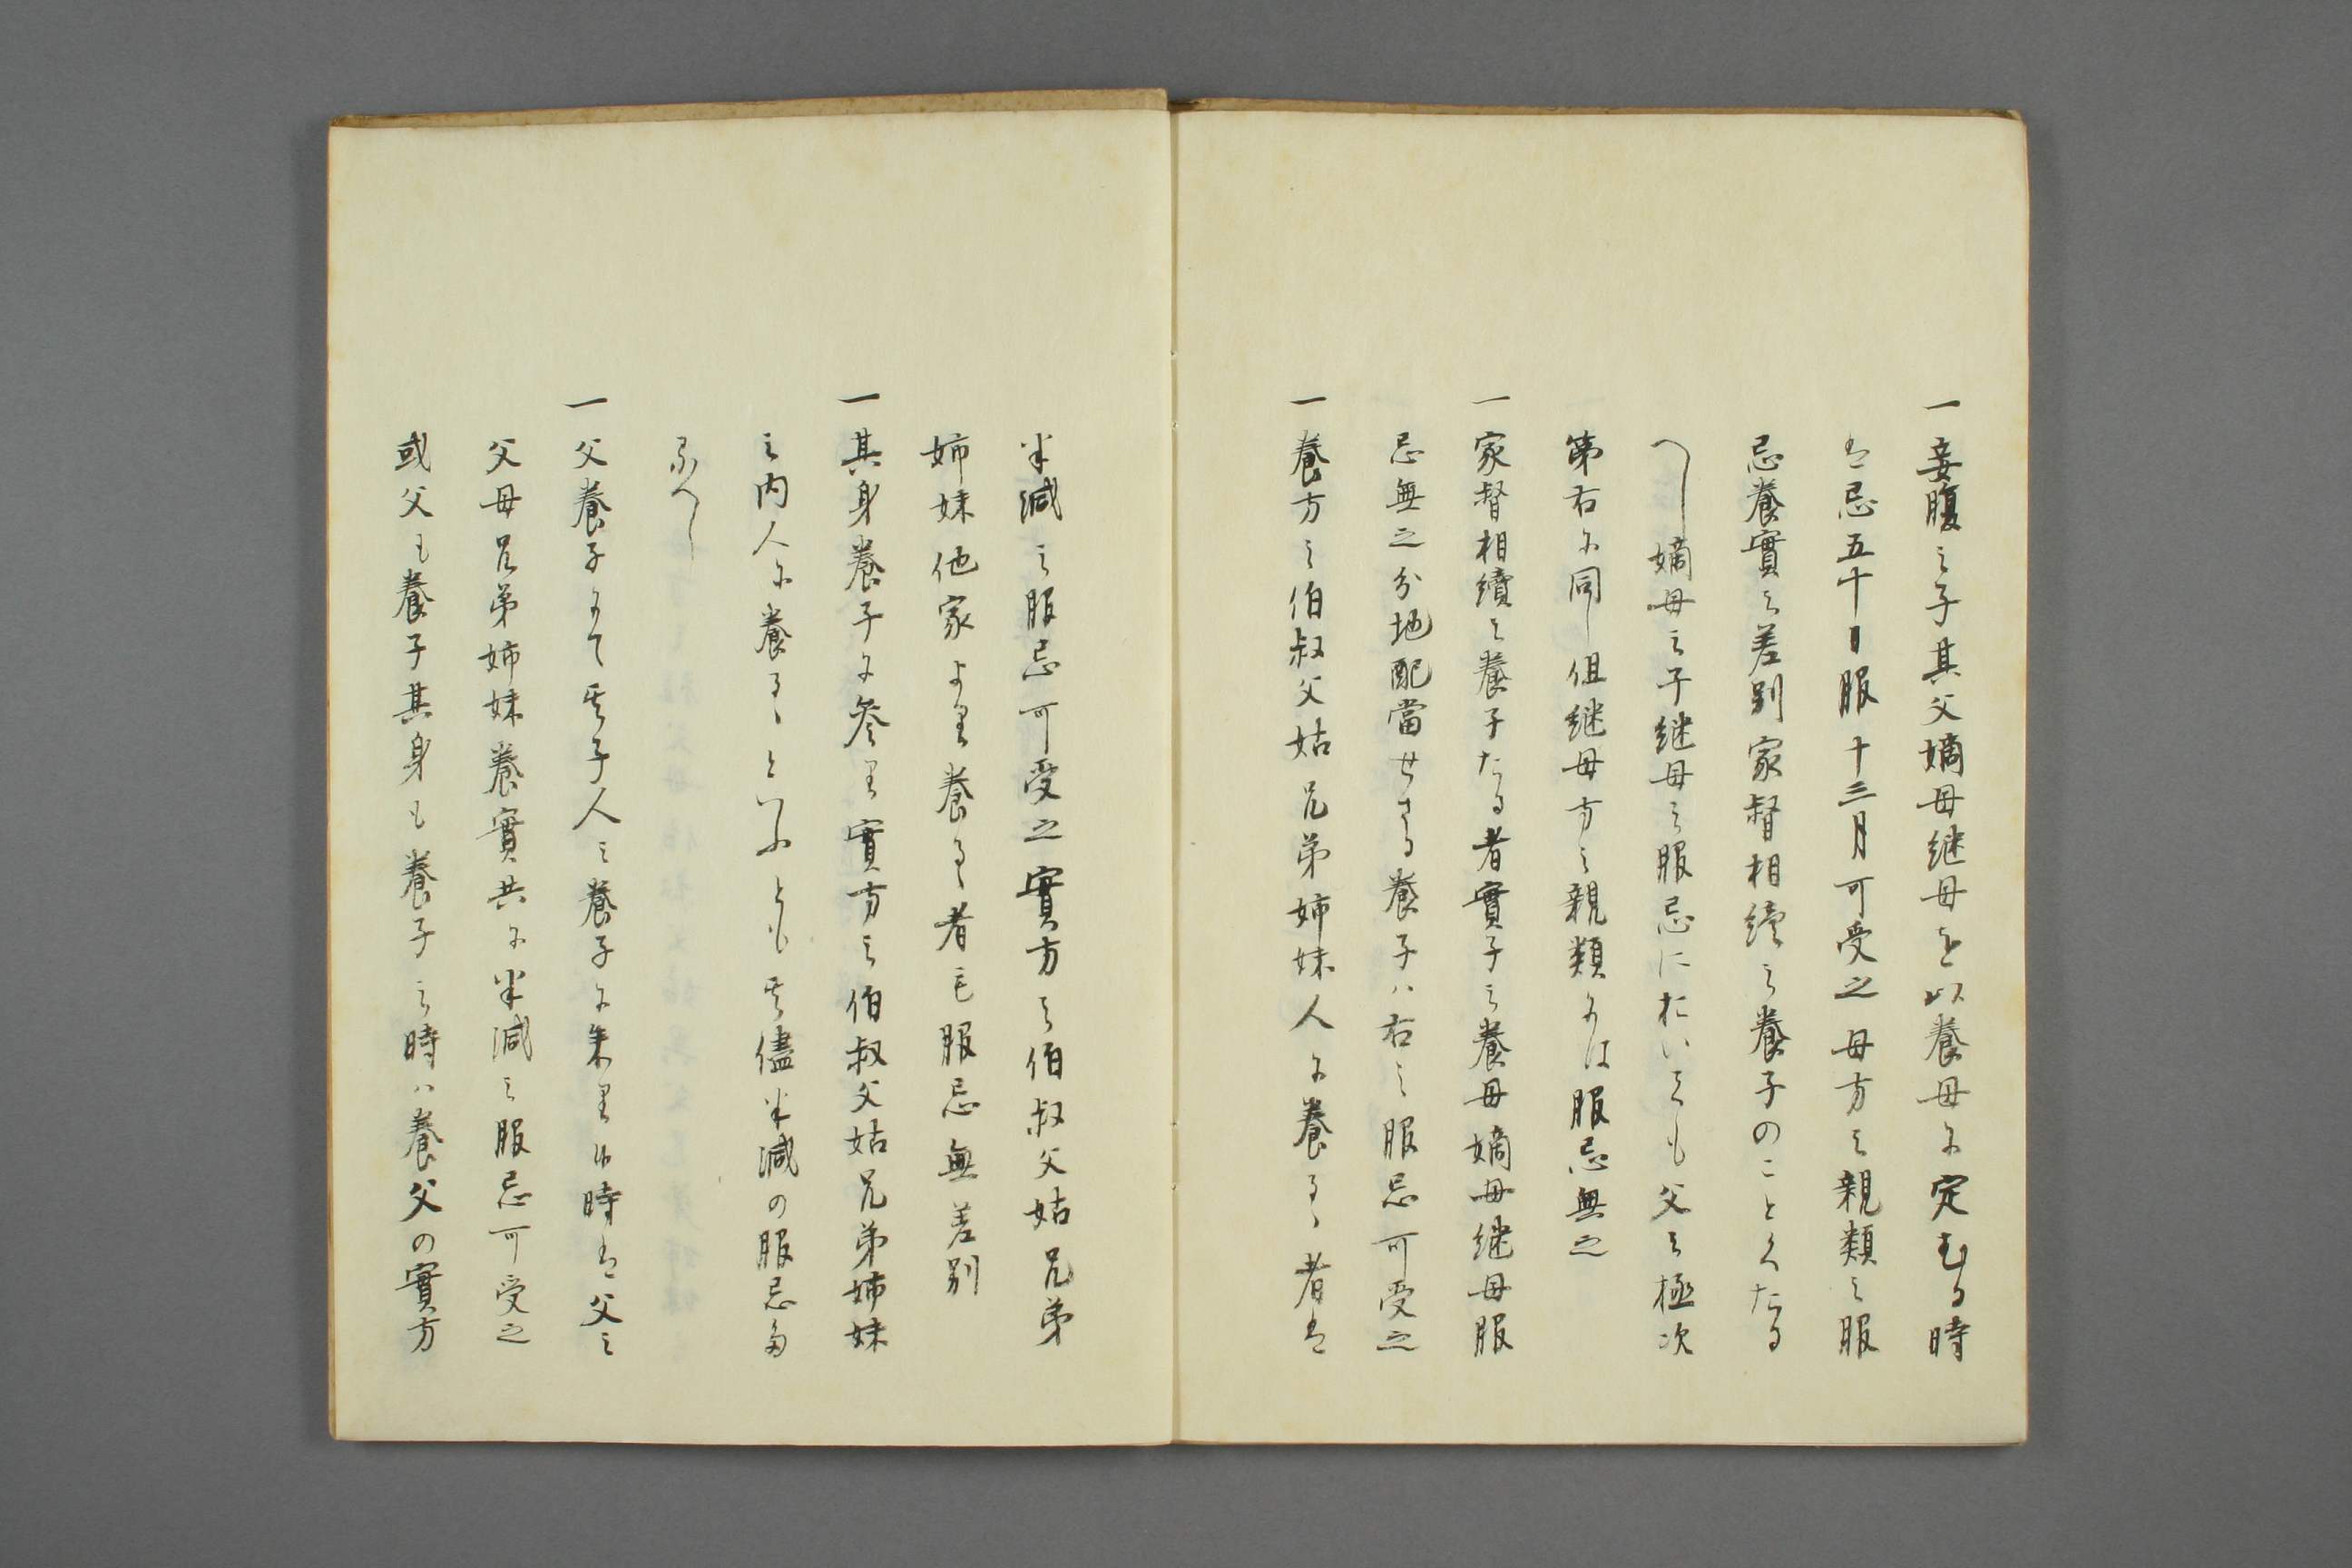 一妾腹之子其父嫡母継母を以養母に定むる時
は忌五十日服十三月可受之母方之親類之服
忌養實之差別家督相續之養子のことくたる
へし嫡母之子継母之服忌においても父之極次
第右に同し但継母方之親類には服忌無之
一家督相續之養子たる者實子之養母嫡母継母服
忌無之分地配當せさる養子ハ右之服忌可受之
一養方之伯叔父姑兄弟姉妹人に養るゝ者は
半減之服忌可受之實方之伯叔父姑兄弟
姉妹他家より養るゝ者も服忌無差別
一其身養子に参り實方之伯叔父姑兄弟姉妹
之内人に養るゝといふとも其儘半減の服忌た
るへし
一父養子にて其子人之養子に来り候時は父之
父母兄弟姉妹養實共に半減之服忌可受之
或父も養子其身も養子之時ハ養父の實方